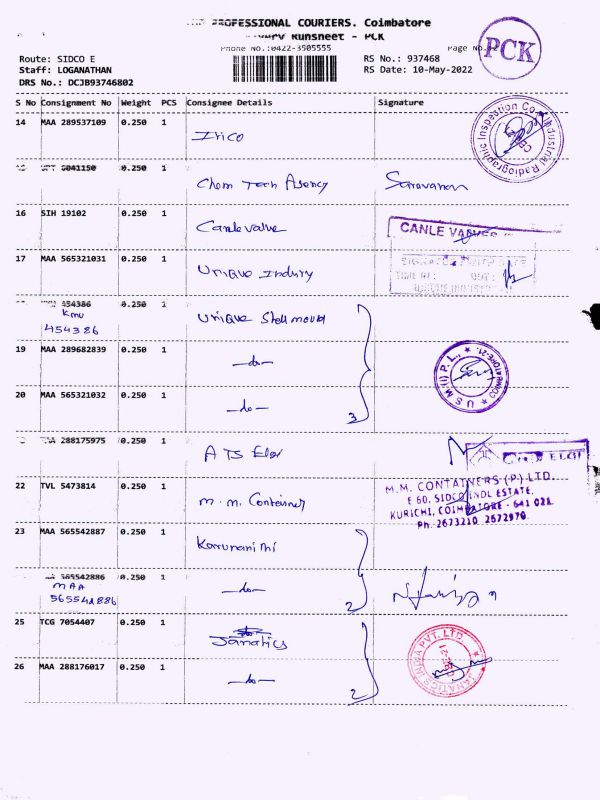 PROFESSIONAL COURIERS. Coimbatore
Runsheet - PCK
Phone No.:0422-3505555
Page No.:
PCK
Route: SIDCO E
Staff: LOGANATHAN
DRS No.: DCJB93746802
RS No.: 937468
RS Date: 10-May-2022
S No Consignment No Weight PCS Consignee Details Signature
14 MAA 289537109 0.250 1
Industrial Radiographic Inspection Co
6041150 0.250 1 Chem Tech Agency Saravanan
16 SIH 19102 0.250 1 Canlevalve
CANLE VALVES
17 MAA 565321031 0.250 1 Unique Indury
454386 0.250 1 Unique Shellmould
KMU
454386
19 MAA 289682839 0.250 1 -do-
20 MAA 565321032 0.250 1 -do- 3
U S M (I) P. L.,
288175975 0.250 1 ATS Elgi
ELGI
22 TVL 5473814 0.250 1 M.M. Container
M.M. CONTAINERS (P) LTD.
E 60, SIDCO INDL ESTATE,
KURICHI, COIMBATORE - 641 021.
Ph: 2673210 2672970
23 MAA 565542887 0.250 1 Karunanithi
565542886 0.250 1 -do- 2
MAA
565542886
25 TCG 7054407 0.250 1 Janatics
JANATICS INDIA PVT. LTD
26 MAA 288176017 0.250 1 -do- 2